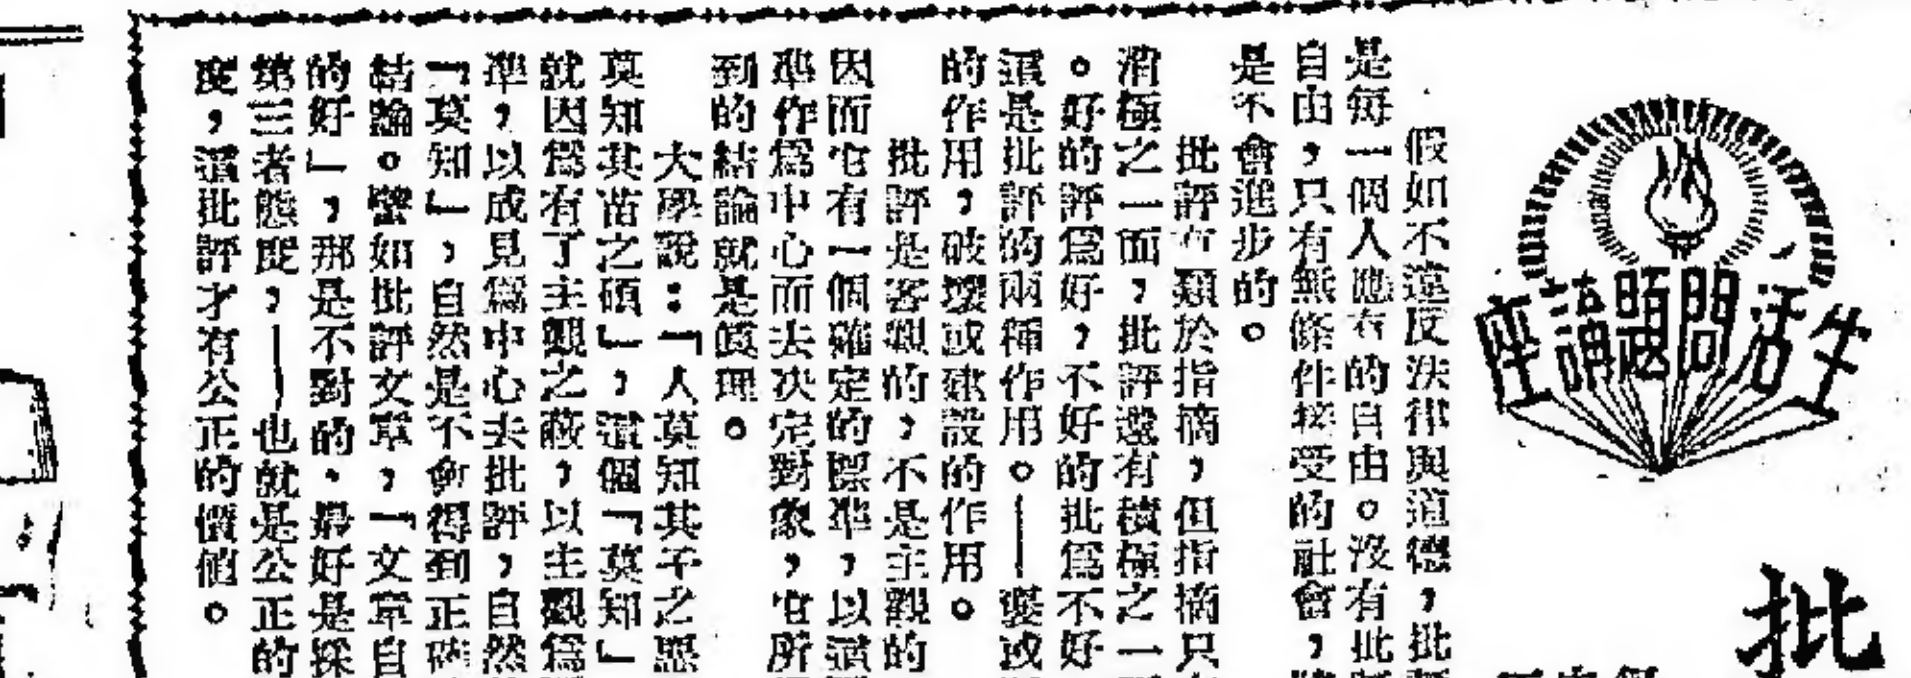 生活問題講座
批
假如不違反法律與道德，批
是每一個人應有的自由。沒有批
自由，只有無條件接受的社會，
是不會進步的。
批評有類於指摘，但指摘只
消極之一面，批評還有積極之一
。好的評爲好，不好的批爲不好
這是批評的兩種作用。——褒或
的作用，破壞或建設的作用。
批評是客觀的，不是主觀的
因而它有一個確定的標準，以這
準作爲中心而去决定對象，它所
到的結論就是眞理。
大學說：「人莫知其子之惡
莫知其苗之碩」，這個「莫知」
就因爲有了主觀之蔽，以主觀爲
準，以成見爲中心去批評，自然
「莫知」，自然是不會得到正確
結論。譬如批評文章，「文章自
的好」，那是不對的，最好是採
第三者態度，——也就是公正的
度，這批評才有公正的價值。